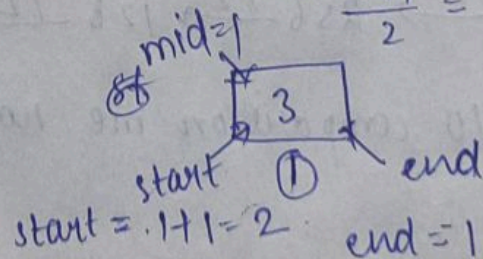 2 =
mid=1
3
start ① end
start = 1+1=2 end = 1